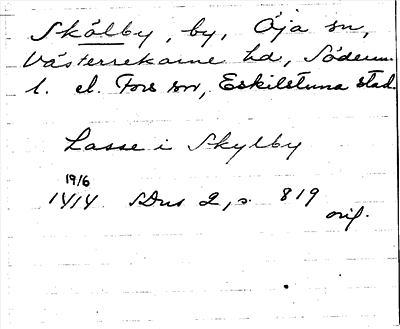 Skälby, by, Öja sn,
Västerrekarne hd, Söderm.
l. el. Fors sn, Eskilstuna stad.
Lasse i Skylby
19/6
1414 SDns 2, s. 819
orig.